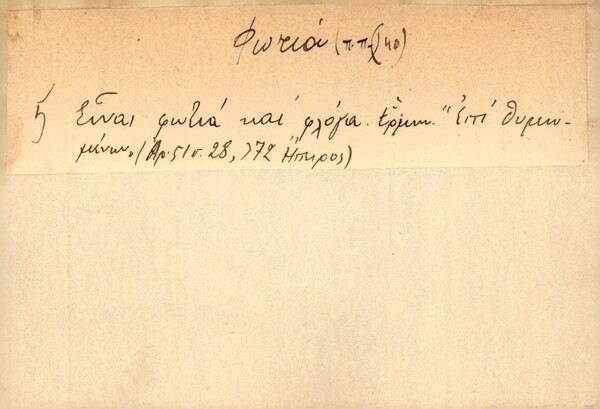 Φωτιά (π.π. 40)
5 Εἶναι φωτιά καί φλόγα. Ἑρμην. "Ἐπί θυμω-
μένων" (Ἀρ. 51 σ. 28, 772 Ἤπειρος)